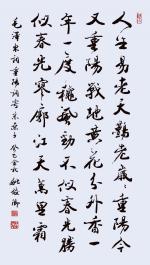 人生易老天難老歲々重陽今
又重陽戰地黃花分外香一
年一度穐風勁不似春光勝
似春光寥廓江天萬里霜
毛澤東詞重陽調寄采桑子 癸巳金秋